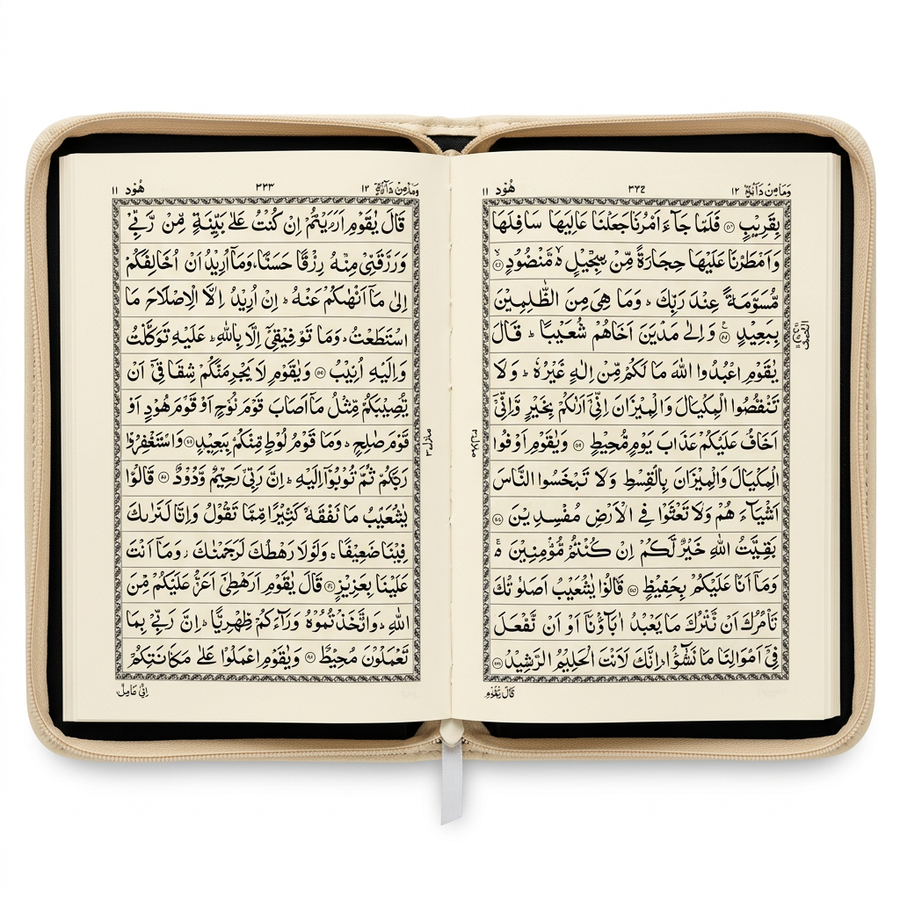 وَمَا مِنْ دَآبَّةٍ ١٢
هُوْد ١١
بِقَرِيْبٍ فَلَمَّا جَآءَ اَمْرُنَا جَعَلْنَا عَالِيَهَا سَافِلَهَا
وَاَمْطَرْنَا عَلَيْهَا حِجَارَةً مِّنْ سِجِّيْلٍ ە مَّنْضُوْدٍ
مُّسَوَّمَةً عِنْدَ رَبِّكَ ؕ وَمَا هِىَ مِنَ الظّٰلِمِيْنَ
بِبَعِيْدٍ وَاِلٰى مَدْيَنَ اَخَاهُمْ شُعَيْبًا ؕ قَالَ
يٰقَوْمِ اعْبُدُوا اللّٰهَ مَا لَكُمْ مِّنْ اِلٰهٍ غَيْرُهٗ ؕ وَلَا
تَنْقُصُوا الْمِكْيَالَ وَالْمِيْزَانَ اِنِّىْٓ اَرَاكُمْ بِخَيْرٍ وَّاِنِّىْٓ
اَخَافُ عَلَيْكُمْ عَذَابَ يَوْمٍ مُّحِيْطٍ وَيٰقَوْمِ اَوْفُوا
الْمِكْيَالَ وَالْمِيْزَانَ بِالْقِسْطِ وَلَا تَبْخَسُوا النَّاسَ
اَشْيَآءَ هُمْ وَلَا تَعْثَوْا فِى الْاَرْضِ مُفْسِدِيْنَ
بَقِيَّتُ اللّٰهِ خَيْرٌ لَّكُمْ اِنْ كُنْتُمْ مُّؤْمِنِيْنَ ە
وَمَآ اَنَا عَلَيْكُمْ بِحَفِيْظٍ قَالُوْا يٰشُعَيْبُ اَصَلٰوتُكَ
تَاْمُرُكَ اَنْ نَّتْرُكَ مَا يَعْبُدُ اٰبَآؤُنَآ اَوْ اَنْ نَّفْعَلَ
فِىْٓ اَمْوَالِنَا مَا نَشٰٓؤُا ؕ اِنَّكَ لَاَنْتَ الْحَلِيْمُ الرَّشِيْدُ
قَالَ يٰقَوْمِ
وَمَا مِنْ دَآبَّةٍ ١٢
٣٣٣
هُوْد ١١
قَالَ يٰقَوْمِ اَرَءَيْتُمْ اِنْ كُنْتُ عَلٰى بَيِّنَةٍ مِّنْ رَّبِّىْ
وَرَزَقَنِىْ مِنْهُ رِزْقًا حَسَنًا ؕ وَمَآ اُرِيْدُ اَنْ اُخَالِفَكُمْ
اِلٰى مَآ اَنْهٰىكُمْ عَنْهُ ؕ اِنْ اُرِيْدُ اِلَّا الْاِصْلَاحَ مَا
اسْتَطَعْتُ ؕ وَمَا تَوْفِيْقِىْٓ اِلَّا بِاللّٰهِ ؕ عَلَيْهِ تَوَكَّلْتُ
وَاِلَيْهِ اُنِيْبُ وَيٰقَوْمِ لَا يَجْرِمَنَّكُمْ شِقَاقِىْٓ اَنْ
يُّصِيْبَكُمْ مِّثْلُ مَآ اَصَابَ قَوْمَ نُوْحٍ اَوْ قَوْمَ هُوْدٍ اَوْ
قَوْمَ صٰلِحٍ ؕ وَمَا قَوْمُ لُوْطٍ مِّنْكُمْ بِبَعِيْدٍ وَاسْتَغْفِرُوْا
رَبَّكُمْ ثُمَّ تُوْبُوْٓا اِلَيْهِ ؕ اِنَّ رَبِّىْ رَحِيْمٌ وَّدُوْدٌ قَالُوْا
يٰشُعَيْبُ مَا نَفْقَهُ كَثِيْرًا مِّمَّا تَقُوْلُ وَاِنَّا لَنَرٰىكَ
فِيْنَا ضَعِيْفًا ۚ وَلَوْلَا رَهْطُكَ لَرَجَمْنٰكَ ؗ وَمَآ اَنْتَ
عَلَيْنَا بِعَزِيْزٍ قَالَ يٰقَوْمِ اَرَهْطِىْٓ اَعَزُّ عَلَيْكُمْ مِّنَ
اللّٰهِ ؕ وَاتَّخَذْتُمُوْهُ وَرَآءَكُمْ ظِهْرِيًّا ؕ اِنَّ رَبِّىْ بِمَا
تَعْمَلُوْنَ مُحِيْطٌ وَيٰقَوْمِ اعْمَلُوْا عَلٰى مَكَانَتِكُمْ
اِنِّىْ عَامِلٌ